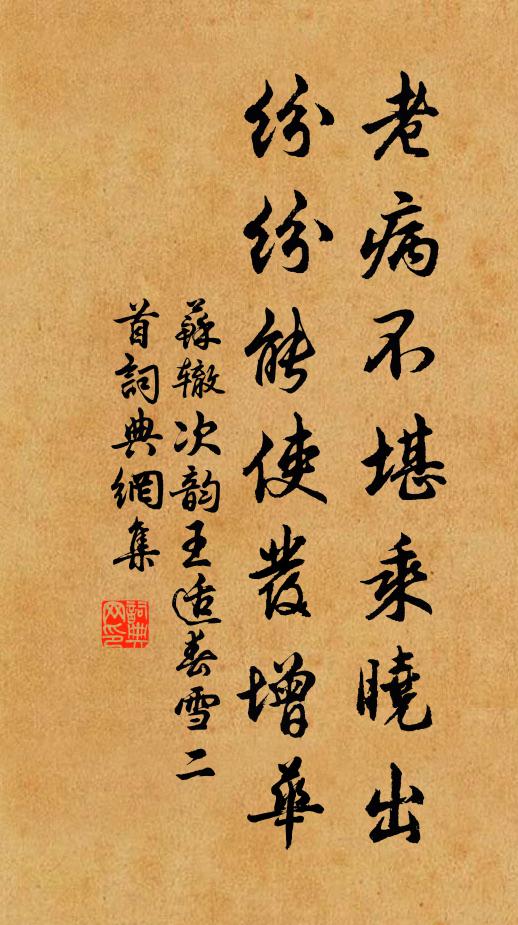 老病不堪乘曉出
紛紛能使發增華
蘇轍次韵王适春雪二
首詞典網集
詞典網印